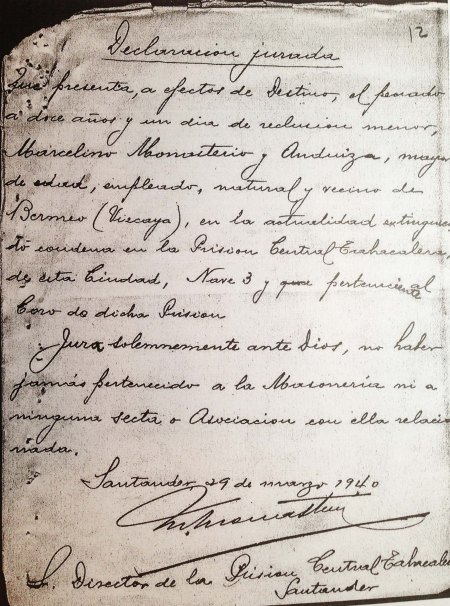 12
Declaracion jurada
Que presenta, a efectos de Destino, el penado
a doce años y un dia de reclusion menor,
Marcelino Monasterio y Anduiza, mayor
de edad, empleado, natural y vecino de
Bermeo (Viscaya), en la actualidad extinguien
do condena en la Prision Central Tabacalera,
de esta Ciudad, Nave 3 y que perteneciente al
Coro de dicha Prision
Jura solemnemente ante Dios, no haber
jamás pertenecido a la Masoneria ni a
ninguna secta o Asociacion con ella relacio
nada.
Santander 29 de marzo 1940
M. Monasterio
Sr. Director de la Prision Central Tabacalera
Santander